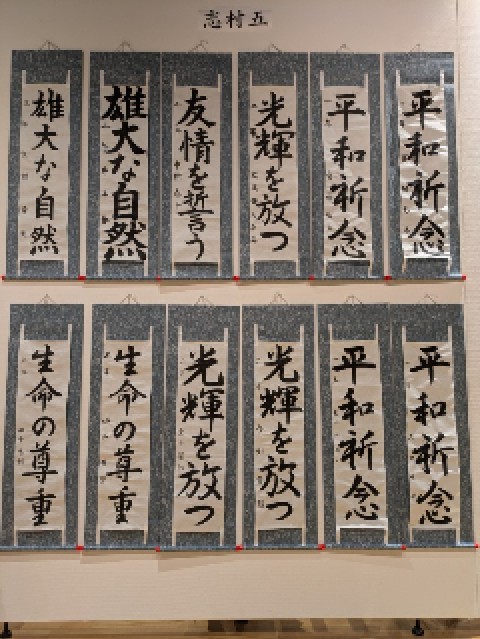 志村五
平和祈念
平和祈念
光輝を放つ
友情を誓う
雄大な自然
雄大な自然
平和祈念
平和祈念
光輝を放つ
光輝を放つ
生命の尊重
生命の尊重